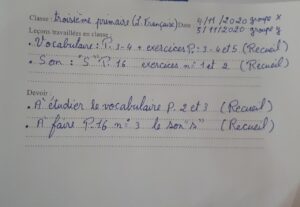 Classe : troisième primaire (L. Française) Date : 4/11/2020 groupe x
5/11/2020 groupe y
Leçons travaillées en classe :
. Vocabulaire : P. 3-4 + exercices P: 3-4 et 5 (Recueil)
. Son : "S" P. 16 exercices n° 1 et 2 (Recueil)
Devoir :
. A étudier le vocabulaire P. 2 et 3 (Recueil)
. A faire P. 16 n° 3 le son "s" (Recueil)